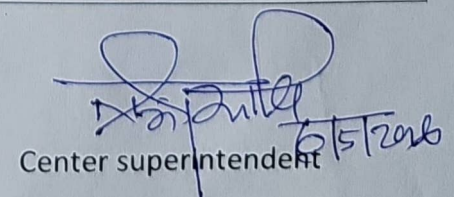 6/5/2026
Center superintendent